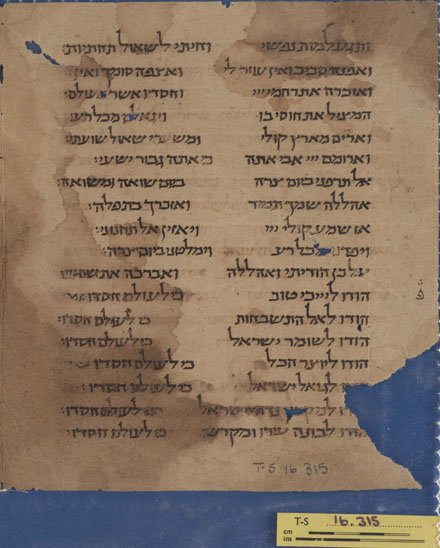 ותגע למות נפשי וחיתי לשאול תחתיות:
ואפנה סביב ואין עוזר לי ואצפה סומך ואין:
ואזכרה את רחמי ייי וחסדיו אשר מעולם:
המציל את חוסי בו ויגאלם מכל רע:
וארים מארץ קולי ומשערי שאול שועתי:
וארומם ייי אבי אתה כי אתה גבור ישעי:
אל תרפני ביום צרה ביום שואה ומשואה:
אהללה שמך תמיד ואזכרך בתפלה:
אז שמע קולי ייי ויאזין אל תחנוני:
ויפדני מכל רע וימלטני ביום צרה:
על כן הודיתי ואהללה ואברכה את שם
הודו לייי כי טוב כי לעולם חסדו:
הודו לאל התשבחות כי לעולם חסדו:
הודו לשומר ישראל כי לעולם חסדו:
הודו ליוצר הכל כי לעולם חסדו:
הודו לגואל ישראל כי לעולם חסדו:
הודו למקבץ נדחי ישראל כי לעולם חסדו:
הודו לבונה עירו ומקדשו כי לעולם חסדו:
T-S 16.315
T-S 16.315
cm
ins